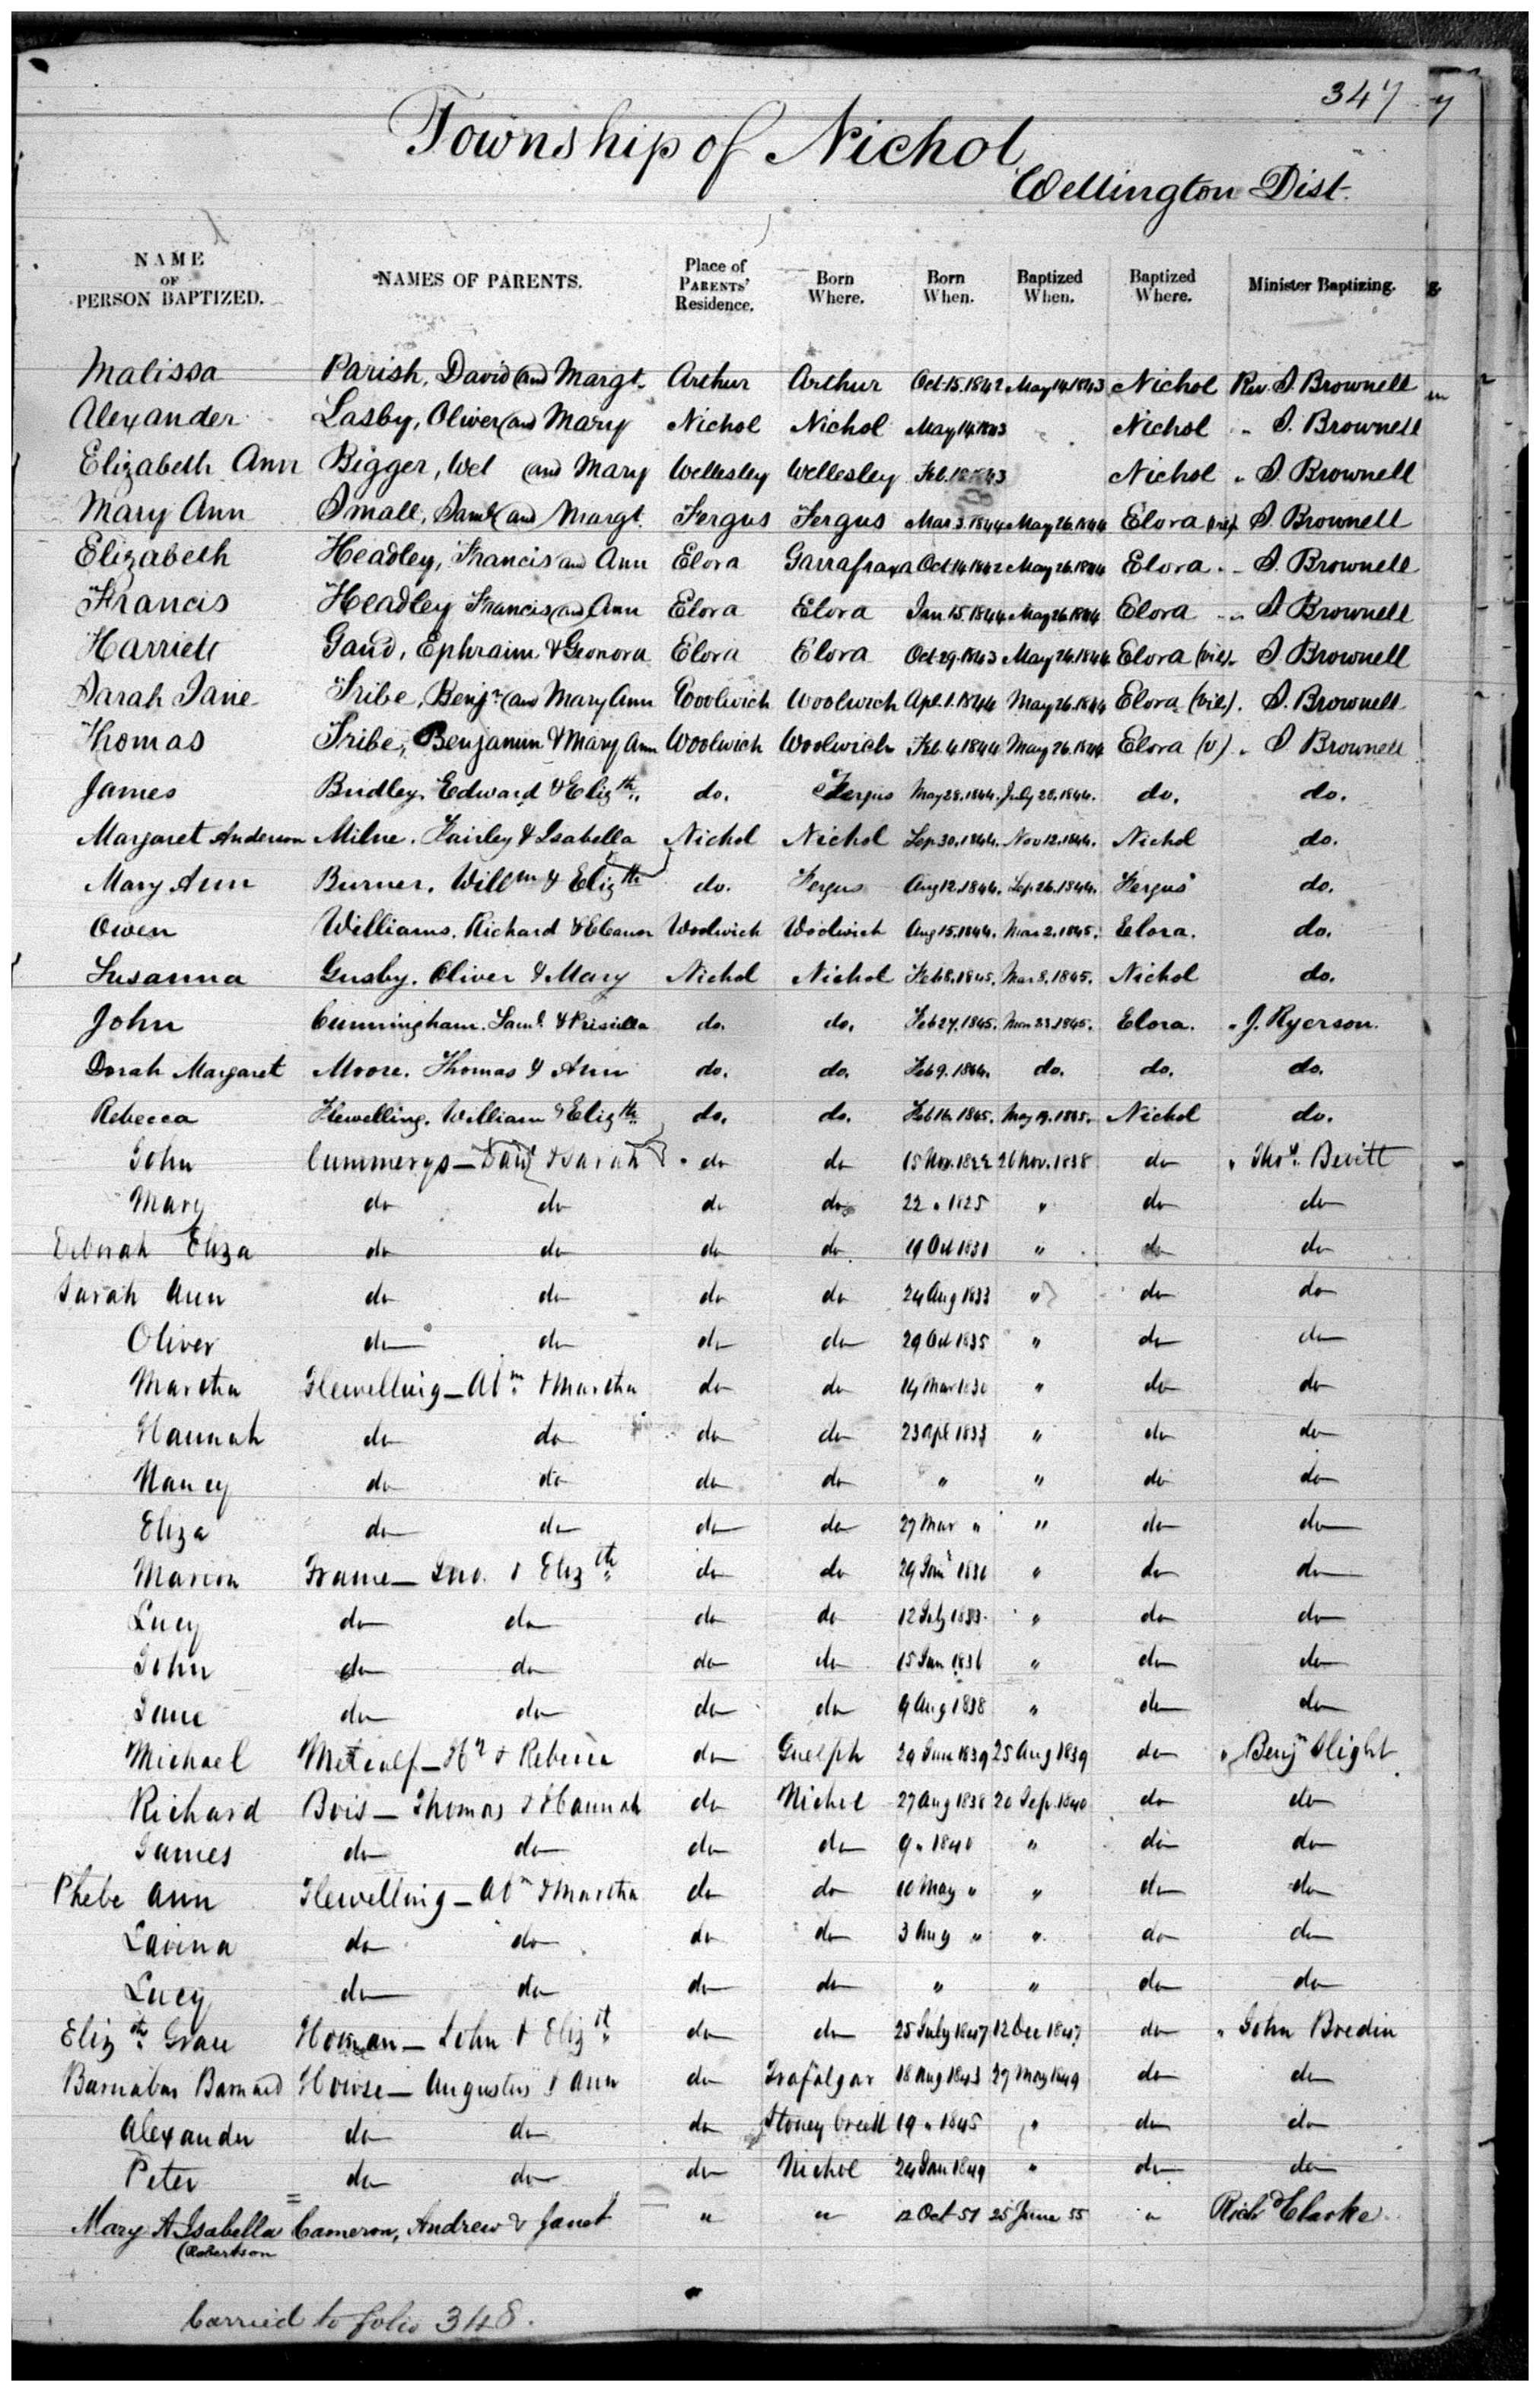 347
Township of Nichol
Wellington Dist.
NAME OF PERSON BAPTIZED. NAMES OF PARENTS. Place of PARENTS' Residence. Born Where. Born When. Baptized When. Baptized Where. Minister Baptizing.
Malissa Parish, David and Margt. Arthur Arthur Oct. 15. 1842 May 14. 1843 Nichol Rev. S. Brownell
Alexander Lasby, Oliver and Mary Nichol Nichol May 14. 1843 Nichol " S. Brownell
Elizabeth Ann Bigger, Wel and Mary Wellesley Wellesley Feb. 1843 Nichol " S. Brownell
Mary Ann Small, Saml and Margt. Fergus Fergus Mar 3. 1844 May 26. 1844 Elora (vil). S. Brownell
Elizabeth Headley, Francis and Ann Elora Garrafraxa Oct 14 1842 May 26. 1844 Elora " S. Brownell
Francis Headley Francis and Ann Elora Elora Jan. 15. 1844 May 26. 1844 Elora " S Brownell
Harriett Gand, Ephraim & Genora Elora Elora Oct. 29. 1843 May 26. 1844 Elora (vil). S Brownell
Sarah Jane Tribe, Benjn and Mary Ann Woolwich Woolwich Apl. 1. 1844 May 26. 1844 Elora (vil). S. Brownell
Thomas Tribe, Benjamin & Mary Ann Woolwich Woolwich Feb. 4. 1844 May 26. 1844 Elora (v) " S Brownell
James Bridley. Edward & Elizth. do. Fergus May 28. 1844. July 28. 1844. do. do.
Margaret Anderson Milne. Fairley & Isabella Nichol Nichol Sep. 30. 1844. Nov 12. 1844. Nichol do.
Mary Ann Burner. Willm & Elizth do. Fergus Aug 12. 1844. Sep. 26. 1844. Fergus do.
Owen Williams. Richard & Eleanor Woolwich Woolwich Aug 15. 1844. Mar 2. 1845. Elora. do.
Susanna Gusby. Oliver & Mary Nichol Nichol Feb 8. 1845. Mar 8. 1845. Nichol do.
John Cunningham. Saml. & Prisicilla do. do. Feb 27. 1845. Mar 23. 1845. Elora. " J. Ryerson.
Dorah Margaret Moore. Thomas & Ann do. do. Feb 9. 1844. do. do. do.
Rebecca Flewelling. William & Elizth do. do. Feb 16. 1845. May 19. 1845. Nichol do.
John Cummergs — & Sarah do do 15 Nov. 1822 26 Nov. 1838 do " Thos. Bevitt
Mary do do do do 22 " 1825 " do do
Deborah Eliza do do do do 19 Oct 1831 " do do
Sarah Ann do do do do 24 Aug 1833 " do do
Oliver do do do do 29 Oct 1835 " do do
Martha Flewelling — Abm & Martha do do 14 Mar 1830 " do do
Hannah do do do do 23 Apl 1833 " do do
Nancy do do do do " " do do
Eliza do do do do 27 Mar " " do do
Marion Frame — Jno. & Elizth do do 29 Jany 1831 " do do
Lucy do do do do 12 July 1833. " do do
John do do do do 15 Jan 1836 " do do
Jane do do do do 9 Aug 1838 " do do
Michael Metcalf — Hy & Rebecca do Guelph 29 June 1839 25 Aug 1839 do " Benjn Slight
Richard Bois — Thomas & Hannah do Nichol 27 Aug 1838 20 Sep. 1840 do do
James do do do do 9 " 1840 " do do
Phebe Ann Flewelling — Abm & Martha do do 10 May " " do do
Lavina do do do do 3 Aug " " do do
Lucy do do do do " " do do
Elizth Grace Homan — John & Elizth do do 25 July 1847 12 Dec 1847 do " John Bredin
Barnabas Barnard Howse — Augustus & Ann do Trafalgar 18 Aug 1843 27 May 1849 do do
Alexander do do do Stoney Creek 19 " 1845 " do do
Peter do do do Nichol 24 Jan 1849 " do do
Mary A Isabella Cameron, Andrew & Janet " " 12 Oct 51 25 June 55 " Richd Clarke
(Robertson
Carried to folio 348.